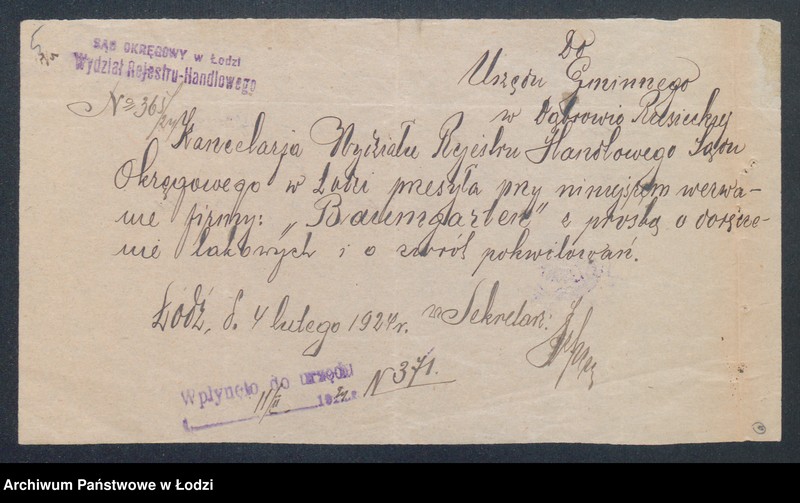 SĄD OKRĘGOWY w Łodzi
Wydział Rejestru-Handlowego
Do
Urzędu Gminnego
w Dąbrowie Rusieckiej
№ 365/24
Kancelarja Wydziału Rejestru Handlowego Sądu
Okręgowego w Łodzi przesyła przy niniejszem wezwa-
nie firmy: „Baumgarten" z prośbą o doręcze-
nie takowych i o zwrot pokwitowań.
Łódź, d. 4 lutego 1924 r.
za Sekretarz:
Wpłynęło do urzędu
11/II 1924 r.
N 371.
Archiwum Państwowe w Łodzi